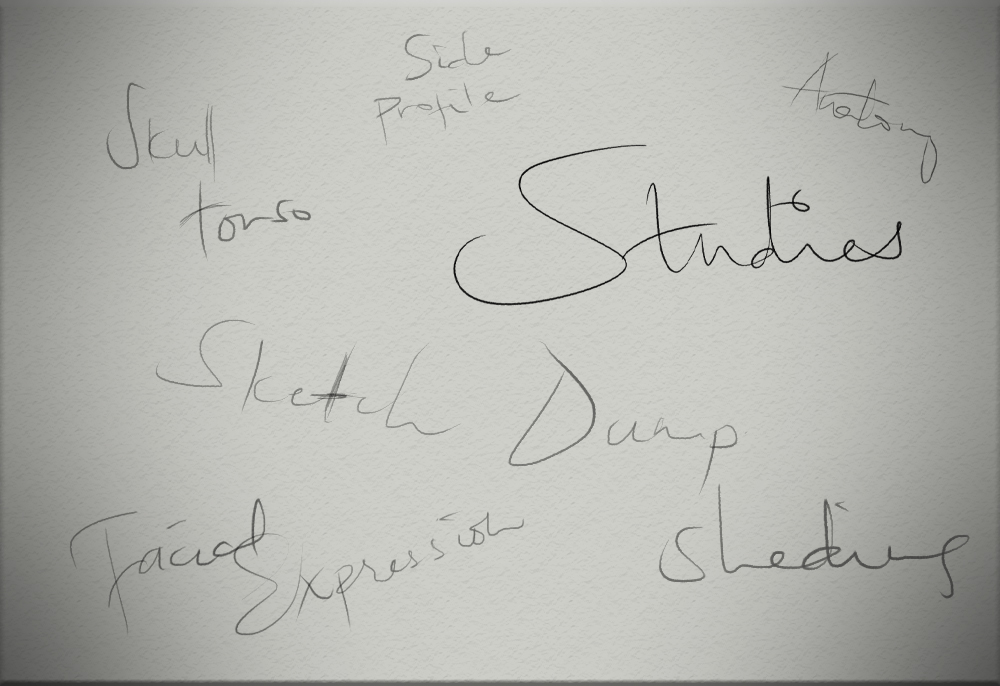 Side
Profile
Anatomy
Skull
torso
Studies
Sketch Dump
Facial
Expression
Shading